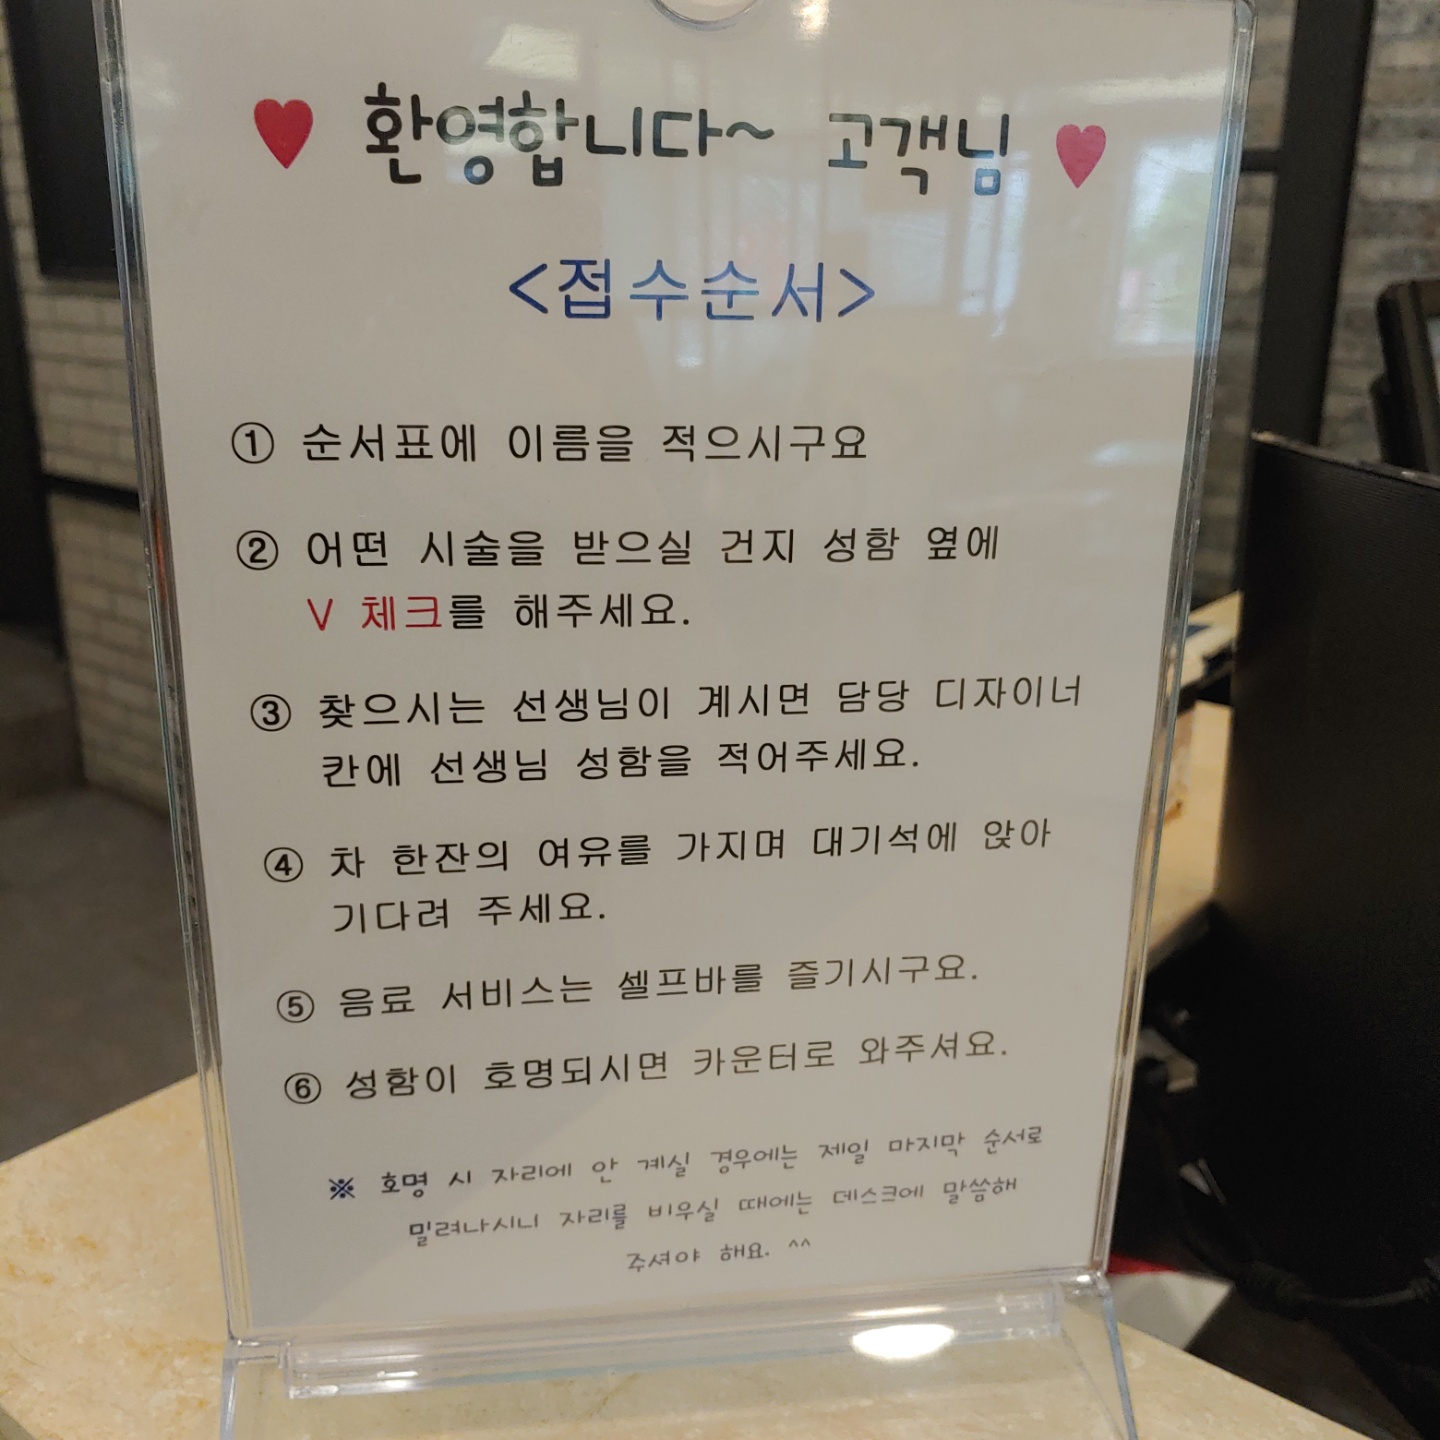 ♥ 환영합니다~ 고객님 ♥
<접수순서>
① 순서표에 이름을 적으시구요
② 어떤 시술을 받으실 건지 성함 옆에
V 체크를 해주세요.
③ 찾으시는 선생님이 계시면 담당 디자이너
칸에 선생님 성함을 적어주세요.
④ 차 한잔의 여유를 가지며 대기석에 앉아
기다려 주세요.
⑤ 음료 서비스는 셀프바를 즐기시구요.
⑥ 성함이 호명되시면 카운터로 와주셔요.
※ 호명 시 자리에 안 계실 경우에는 제일 마지막 순서로
밀려나시니 자리를 비우실 때에는 데스크에 말씀해
주셔야 해요. ^^